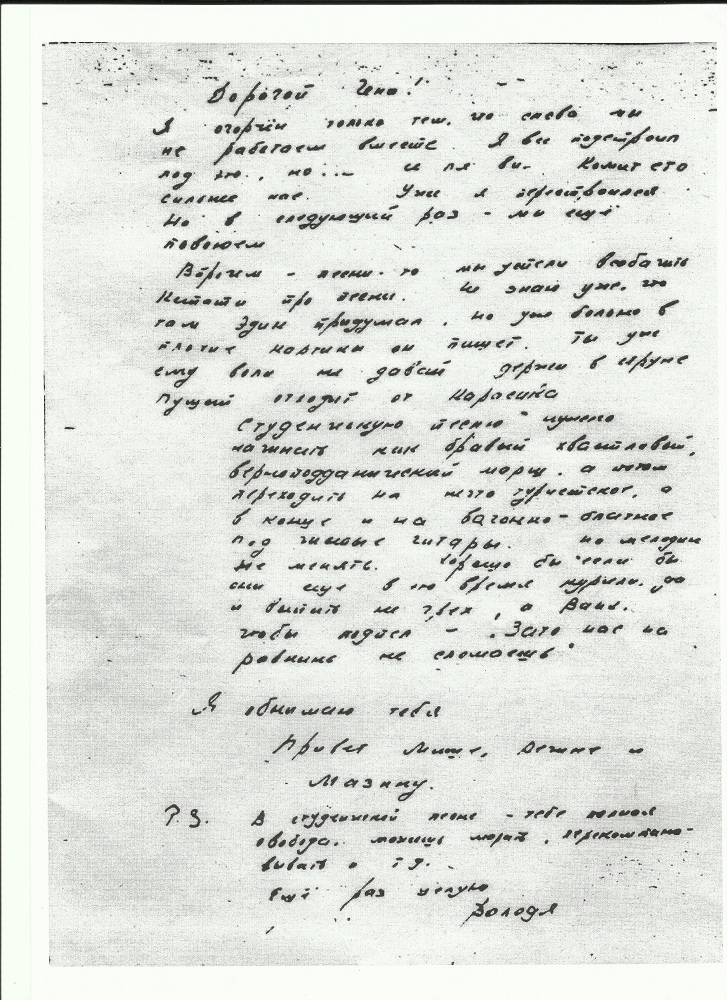 Дорогой Гена!
Я огорчён только тем, что снова мы
не работаем вместе. Я все подстроил
под это, но... Комитето
сильнее нас. Уже я перестроился
Но в следующий раз - мы ещё
повоюем
Впрочем - песни-то мы успели
про песни. Не знаю уже, что
там Эдик придумал, но уж больно в
плохие картины он пишет. Ты уже
ему воли не давай держи в
Пущай отходит от Карасика
Студенческую песню нужно
начинать как бравый хвастловый,
верноподданический марш, а потом
переходить на нечто туристское, а
в конце и на вагонно-блатное
под чистые гитары. но мелодии
не менять. Хорошо бы если бы
они еще в то время курили, да
и выпить не грех, а Ваня.
чтобы подпел - "Зато нас на
равнине не сломаешь"
Я обнимаю тебя
Привет Мише, Дечине и
Мазину.
P.S. В студенческой песне - тебе полная
свобода. можешь марать, перекомпано-
вывать и т.д.
Ещё раз целую
Володя